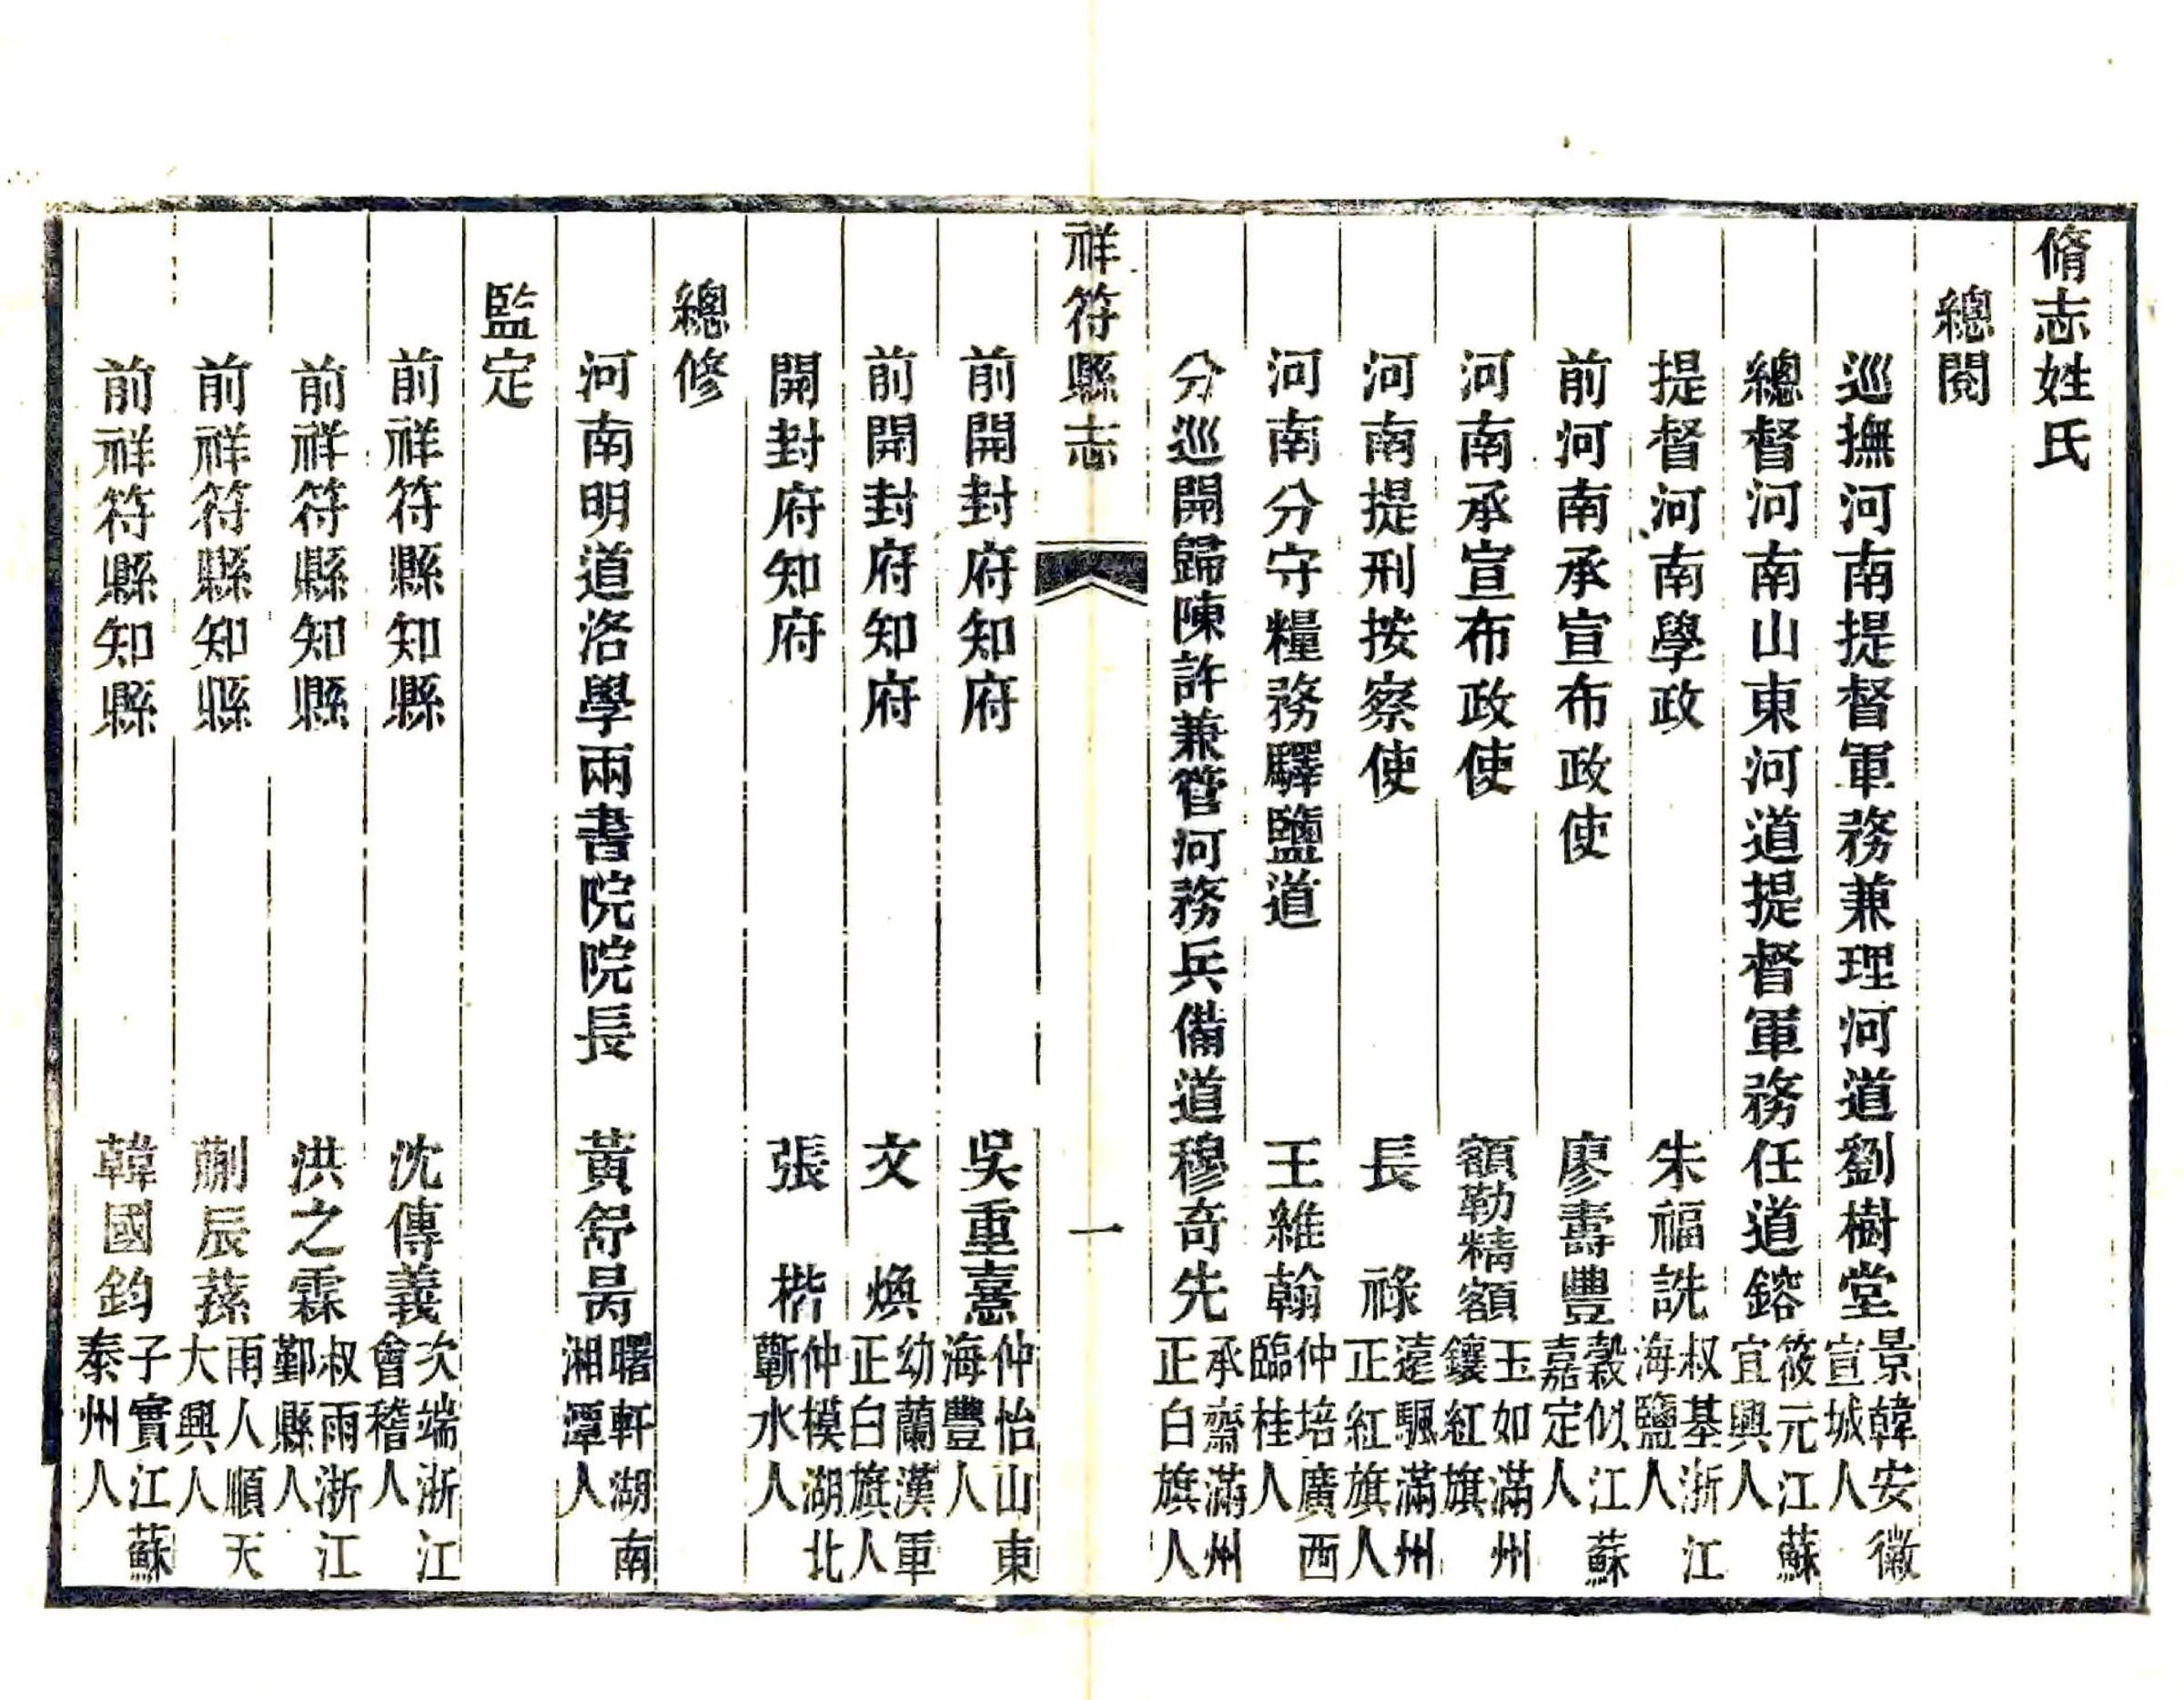 脩志姓氏
總閱
巡撫河南提督軍務兼理河道劉樹堂景韓安徽宣城人
總督河南山東河道提督軍務任道鎔筱元江蘇宜興人
提督河南學政朱福詵叔基浙江海鹽人
前河南承宣布政使廖壽豐縠似江蘇嘉定人
河南承宣布政使額勒精額玉如滿州鑲紅旗
河南提刑按察使長祿遠颿滿州正紅旗人
河南分守糧務驛鹽道王維翰仲培廣西臨桂人
分巡開歸陳許兼管河務兵備道穆奇先承齋滿州正白旗人
祥符縣志 一
前開封府知府吳重憙仲怡山東海豐人
前開封府知府文煥幼蘭漢軍正白旗人
開封府知府張楷仲模湖北蘄水人
總修
河南明道洛學兩書院院長黃舒昺曙軒湖南湘潭人
監定
前祥符縣知縣沈傳義次端浙江會稽人
前祥符縣知縣洪之霖叔雨浙江鄞縣人
前祥符縣知縣蒯辰蓀雨人順天大興人
前祥符縣知縣韓國鈞子實江蘇泰州人